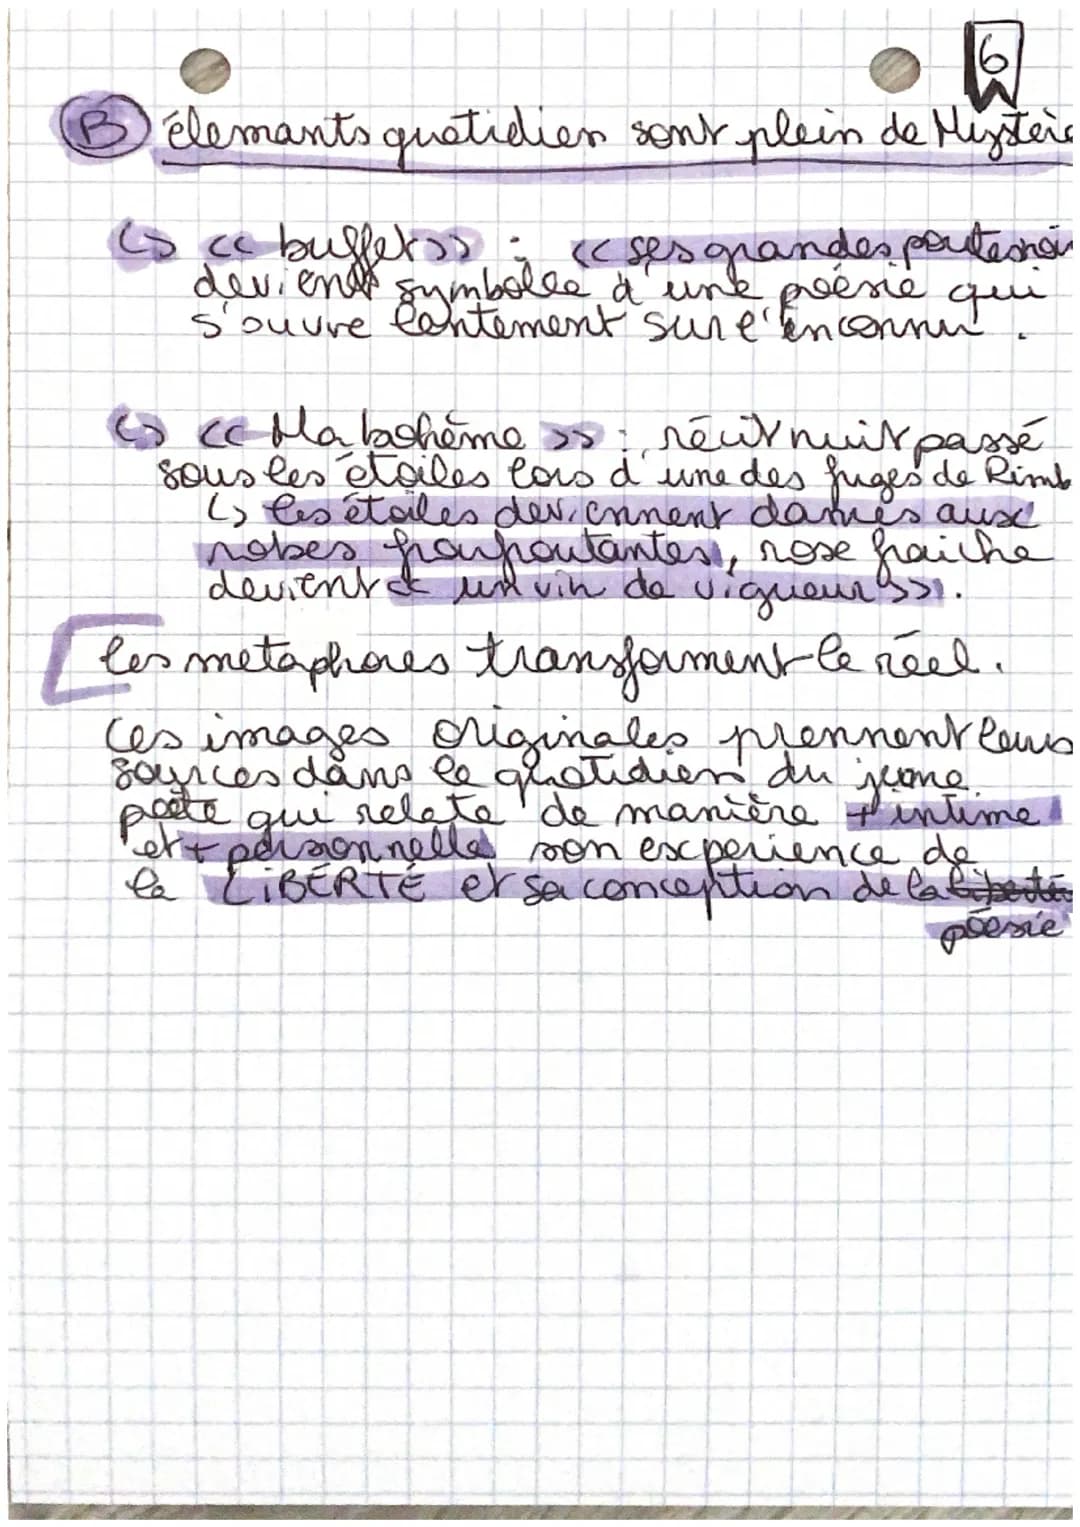 6
B élemants quotidien sont plein de Mystère
↳ << buffet >> : << ses grandes portes noir
devient symbolee d'une poésie qui
s'ouvre lentement sur l'inconnu.
↳ << Ma bohème >> : récit nuit passé
sous les étoiles lors d'une des fuges de Rimb
↳ les étoiles deviennent dames aux
robes froufroutantes, rose fraiche
devient << un vin de vigueur >>.
les metaphores transforment le réel.
Ces images originales prennent leurs
sources dans le quotidien du jeune
poète qui relate de manière + intime
et + personnelle son experience de
la LiBERTÉ et sa conception de la liberté
poésie